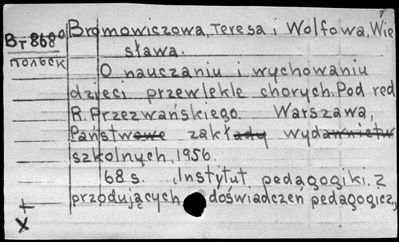 Bromowiczowa, Teresa i Wolfowa, Wie
Br 8680
польск
sława.
O nauczaniu i wychowaniu
dzieci przewlekle chorych. Pod red
R. Przezwańskiego. Warszawa,
Państwowe zakłady wydawnictw
szkolnych, 1956.
68 s. (Instytut pedagogiki. Z
przodujących doświadczeń pedagogicz,
+
X